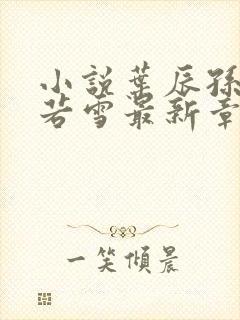 小說葉辰孫
若雪最新章
一笑傾晨